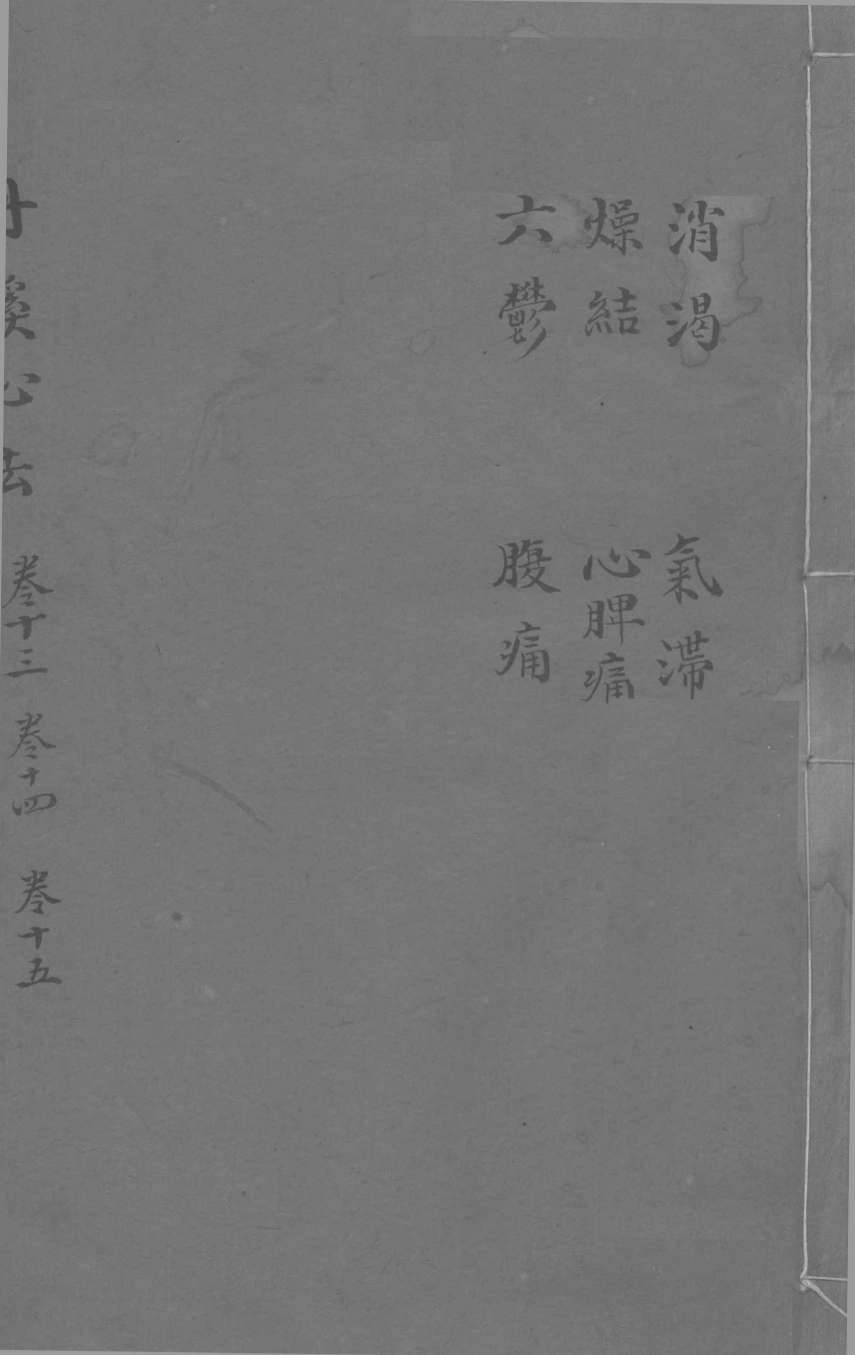 消渴 氣滯
燥結 心脾痛
六鬱 腹痛
丹溪心法 卷十三 卷十四 卷十五